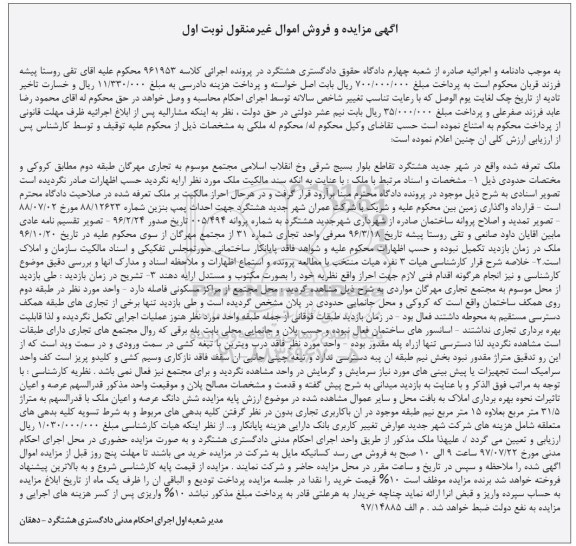 آگهی مزایده و فروش اموال غیرمنقول نوبت اول
به موجب دادنامه و اجرائیه صادره از شعبه چهارم دادگاه حقوقی دادگستری هشتگرد در پرونده اجرائی کلاسه ۹۶۱۹۵۳ محکوم علیه آقای تقی روستا پیشه
فرزند قربان محکوم است به پرداخت مبلغ ۷۰۰/۰۰۰/۰۰۰ ریال بابت اصل خواسته و پرداخت هزینه دادرسی به مبلغ ۱۱/۳۳۰/۰۰۰ ریال و خسارت تاخیر
تادیه از تاریخ چک لغایت یوم الوصل که با رعایت تناسب تغییر شاخص سالانه توسط اجرای احکام محاسبه و وصل خواهد در حق محکوم له آقای محمود رضا
عابد فرزند صفرعلی و پرداخت مبلغ ۳۵/۰۰۰/۰۰۰ ریال بابت نیم عشر دولتی در حق دولت ، نظر به اینکه مشارالیه پس از ابلاغ اجرائیه ظرف مهلت قانونی
از پرداخت محکوم به امتناع نموده است حسب تقاضای وکیل محکوم له/ محکوم له ملکی به مشخصات ذیل از محکوم علیه توقیف و توسط کارشناس پس
از ارزیابی ارزش کلی آن چنین اعلام نموده است:
ملک تعرفه شده واقع در شهر جدید هشتگرد تقاطع بلوار بسیج شرقی وخ انقلاب اسلامی مجتمع موسوم به تجاری مهرگان طبقه دوم مطابق کروکی و
مختصات حدودی ذیل ۱- مشخصات و اسناد مرتبط با ملک : با عنایت به انکه سند مالکیت ملک مورد نظر ارایه نگردید حسب اظهارات صادر نگردیده است
تصویر اسنادی به شرح ذیل موجود در پرونده دادگاه محترم مبنا برآورد قرار گرفت و در هرحال احراز مالکیت بر ملک تعرفه شده در صلاحیت دادگاه محترم
است - قرارداد واگذاری زمین بین محکوم علیه و شریک با شرکت عمران شهر جدید هشتگرد جهت احداث پمپ بنزین شماره ۸۸/۱۲۶۲۳ مورخ ۸۸/۰۷/۰۲
- تصویر تمدید و اصلاح پروانه ساختمان صادره ازشهرداری شهرجدید هشتگرد به شماره پروانه ۰۰۵/۴۹۴ تاریخ صدور ۹۶/۲/۲۴ - تصویر تقسیم نامه عادی
مابین آقایان داود صانعی و تقی روستا پیشه تاریخ ۹۶/۳/۱۸ معرفی واحد تجاری شماره ۳۱ از مجتمع مهرگان از سوی محکوم علیه در تاریخ ۹۶/۱۰/۲۰
ملک در زمان بازدید تکمیل نبوده و حسب اظهارات محکوم علیه و شواهد فاقد پایانکار ساختمانی صورتمجلس تفکیکی و اسناد مالکیت سازمان و املاک
است.۲- خلاصه شرح قرار کارشناسی هیات ۳ نفره هیات منتخب با مطالعه پرونده و استماع اظهارات و ملاحظه اسناد و مدارک انها و بررسی دقیق موضوع
کارشناسی و نیز انجام هرگونه اقدام فنی لازم جهت احراز واقع نظریه خود را بصورت مکتوب و مستدل ارایه دهند ۳- تشریح در زمان بازدید : طی بازدید
از محل موسوم به مجتمع تجاری مهرگان مواردی به شرح ذیل مشاهده گردید . محل مجتمع از مراکز مسکونی فاصله دارد - واحد مورد نظر در طبقه دوم
روی همکف ساختمان واقع است که کروکی و محل جانمایی حدودی در پلان مشخص گردیده است و طی بازدید تنها برخی از تجاری های طبقه همکف
دسترسی مستقیم به محوطه داشتند فعال بود - در زمان بازدید طبقات فوقانی از جمله طبقه واحد مورد نظر هنوز عملیات اجرایی تکمل نگردیده و لذا قابلیت
بهره برداری تجاری نداشتند - آسانسور های ساختمان فعال نبوده و حسب پلان و جانمایی محلی بابت پله برقی که روال مجتمع های تجاری دارای طبقات
است مشاهده نگردید لذا دسترسی تنها ازراه پله مقدور بوده - واحد مورد نظر فاقد درب ویترین یا تیغه کشی در سمت ورودی و در سمت وید است که از
این رو تدقیق متراژ مقدور نبود
سرامیک است تجهیزات یا پیش بینی های مورد نیاز سرمایش و گرمایش در واحد مشاهده نگردید و برای مجتمع نیز فعال نمی باشد . نظریه کارشناسی : با
توجه به مراتب فوق الذکر و با عنایت به بازدید میدانی به شرح پیش گفته و قدمت و مشخصات مصالح پلان و موقعیت واحد مذکور قدرالسهم عرصه و اعیان
تاثیرات نحوه بهره برداری املاک به بافت محل و سایر عموال مشاهده شده در موضوع ارزش پایه مزایده شش دانگ عرصه و اعیان ملک با قدرالسهم به متراژ
۳۱/۵ متر مربع بعلاوه ۱۵ متر مربع نیم طبقه موجود در آن باکاربری تجاری بدون در نظر گرفتن کلیه بدهی های مربوط و به شرط تسویه کلیه بدهی های
متعلقه شامل هزینه های شرکت شهر جدید عوارض تغییر کاربری بانک دارایی هزینه پایانکار و... از نظر اینکه هیات کارشناسی مبلغ ۱/۰۳۰/۰۰۰/۰۰۰ ریال
ارزیابی و تعیین می گردد / علیهذا ملک مذکور از طریق واحد اجرای احکام مدنی دادگستری هشتگرد و به صورت مزایده حضوری در محل اجرای احکام
مدنی مورخ ۹۷/۰۷/۲۲ ساعت ۹ الی ۱۰ صبح به فروش می رسد کسانیکه مایل به شرکت در مزایده خرید می باشند تا مهلت پنج روز قبل از مزایده اموال
آگهی شده را ملاحظه و سپس در تاریخ و ساعت مقرر در محل مزایده حاضر و شرکت نمایند . مزایده از قیمت پایه کارشناسی شروع و به بالاترین پیشنهاد
فروخته خواهد شد برنده مزایده موظف است ۱۰% قیمت خرید را نقدا در جلسه مزایده پرداخت تودیع و الباقی آن را ظرف یک ماه از تاریخ ابلاغ مزایده
به حساب سپرده واریز و قبض آنرا ارائه نماید چنانچه خریدار به هرعلتی قادر به پرداخت مبلغ مذکور نباشد ۱۰% واریزی پس از کسر هزینه های اجرایی و
مزایده به نفع دولت ضبط خواهد شد . م الف ۹۷/۱۴۸۸۵
مدیر شعبه اول اجرای احکام مدنی دادگستری هشتگرد -دهقان